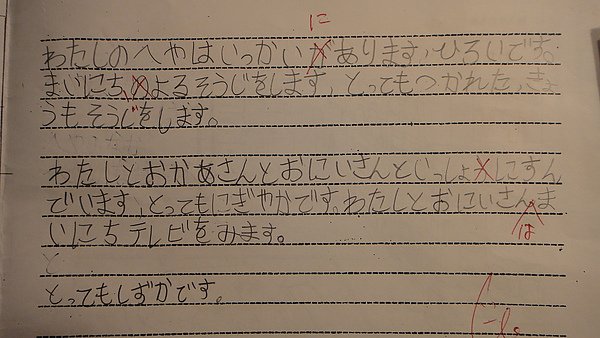 に
わたしのへやはいっかいがあります、ひろいです。
まいにちのよるそうじをします、とってもつかれた、きょ
うもそうじをします。
わたしとおかあさんとおにいさんといっしょにすん
でいます、とってもにぎやかです。わたしとおにいさんま
は
いにちテレビをみます。
と
とってもしずかです。